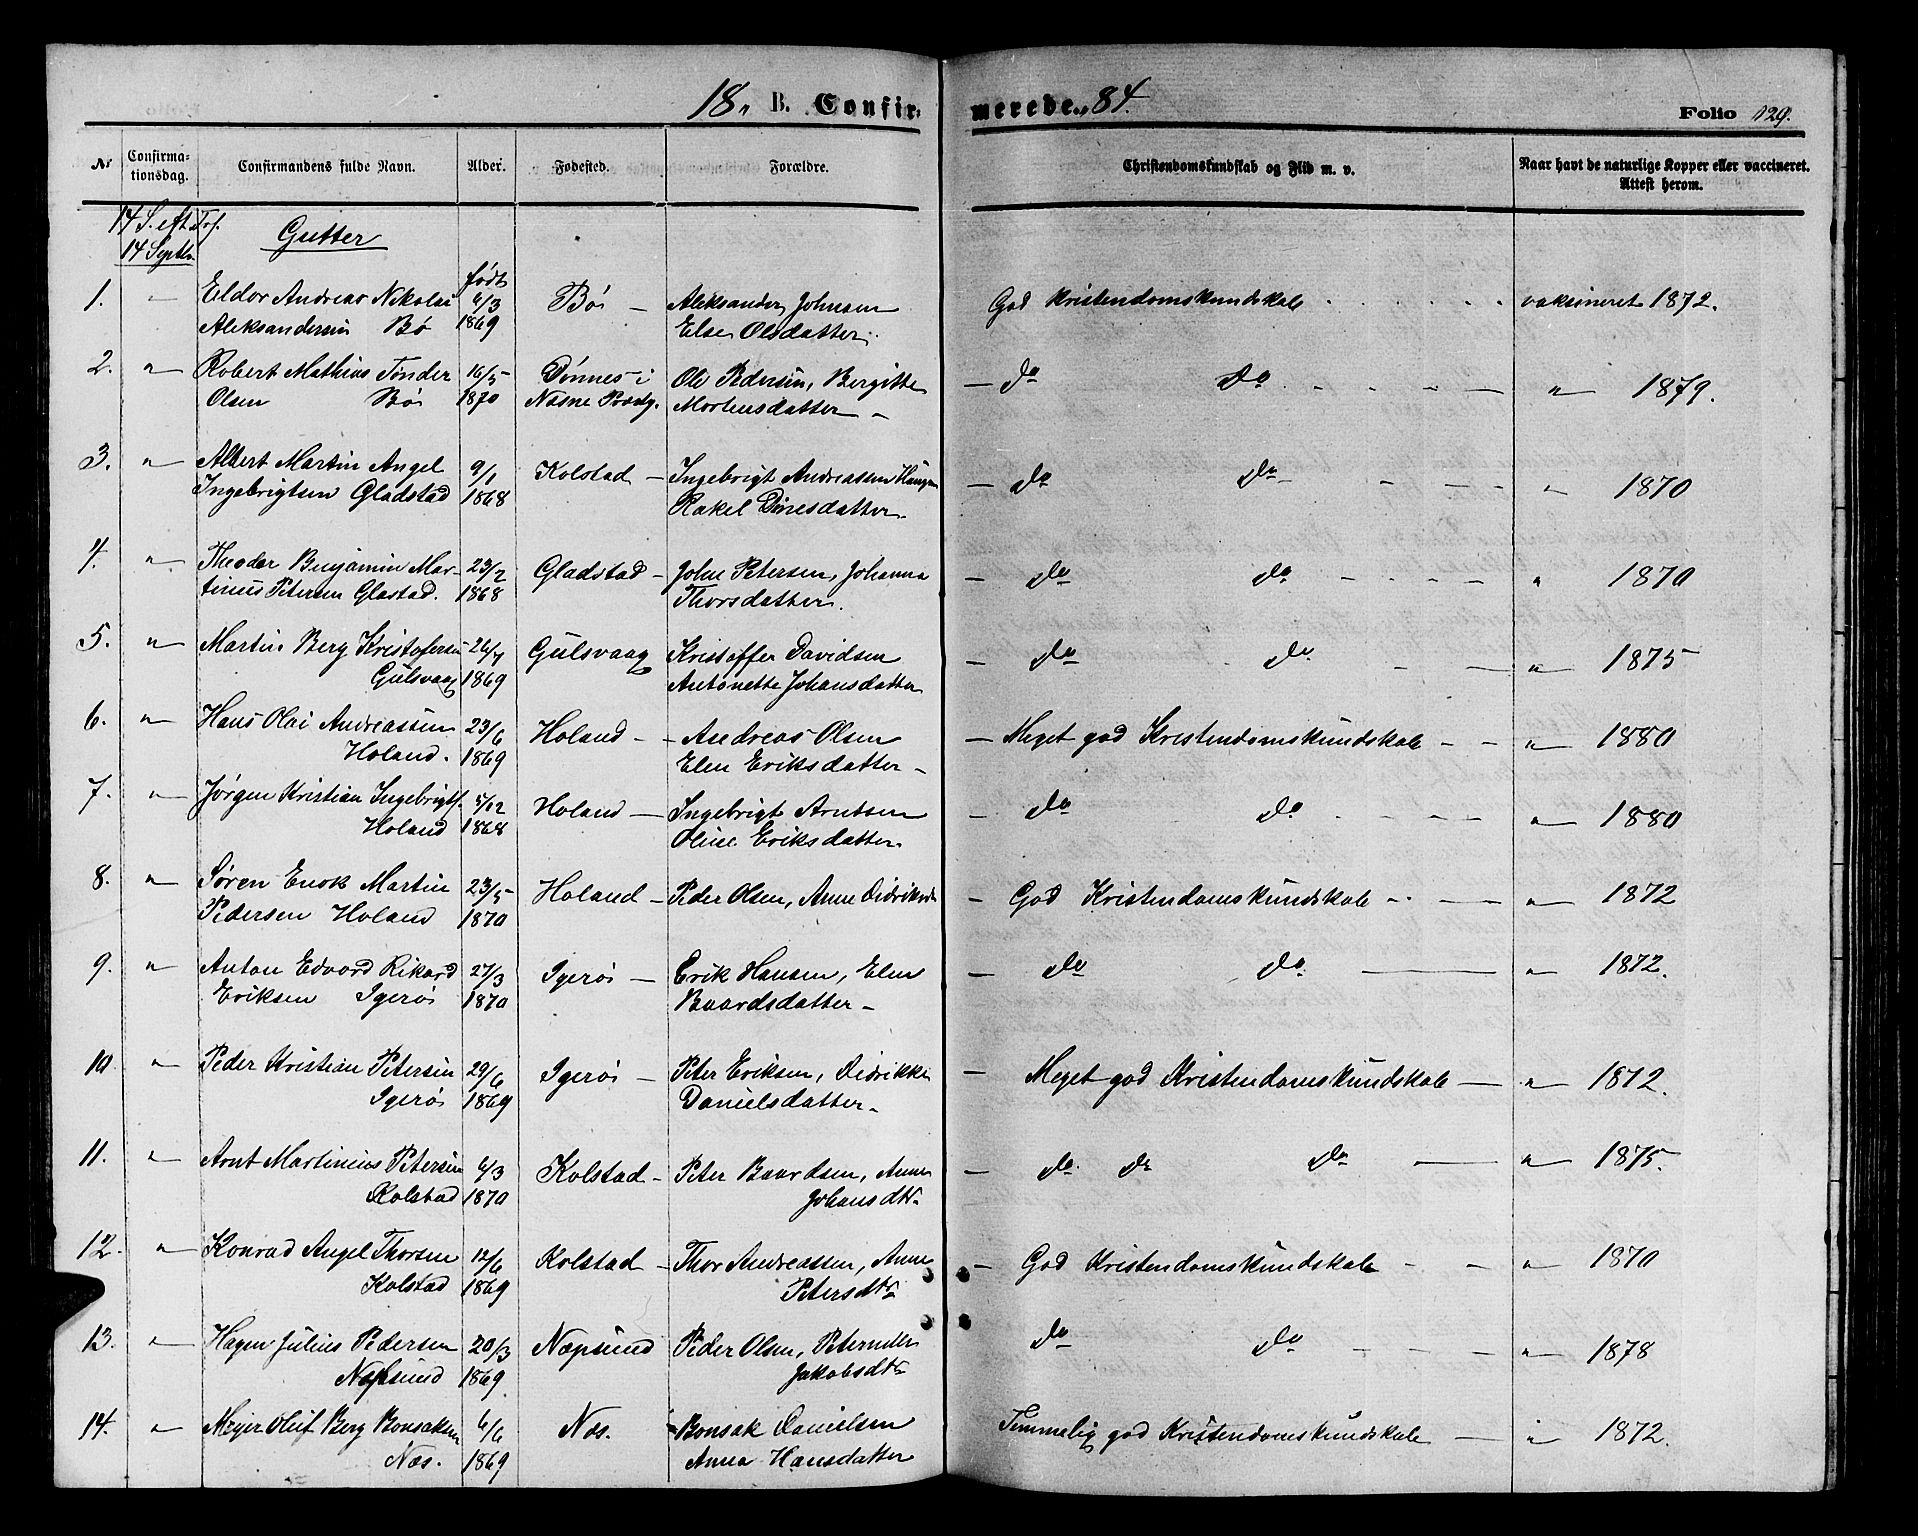 18 " B. Confir-
merede. " 84.
Folio 129.
No
Confirma-
tionsdag.
Confirmandens fulde Navn.
Alder.
Fødested.
Forældre.
Christendomskundskab og Flid m. v.
Naar havt de naturlige Kopper eller vaccineret.
Attest herom.
14 S. eft. Trf.
14 Septbr
Gutter
født
1. " Eldor Andreas Nikolai 6/3 Bø – Aleksander Johnsen God Kristendomskundskab vaksineret 1872.
Aleksandersen Bø 1869 Else Olsdatter.
2. " Robert Mathias Tønder 16/5 Dønnes i Ole Pedersen, Bergitte – do do " 1879.
Olsen Bø 1870 Næsne Præstg. Mortensdatter –
3. " Albert Martin Angel 9/1 Kolstad – Ingebrigt Andreassen – do do " 1870
Ingebrigtsen Gladstad 1868 Rakel Dinesdatter.
4. " Theodor Benjamin Mar- 23/2 Gladstad – John Petersen, Johanna – do do " 1870
tinus Petersen Glastad. 1868 Thorsdatter.
5. " Martin Berg Kristofersen 26/7 Gulsvaag Kristoffer Davidsen – do do " 1875
Gulsvaag 1869 Antonette Johansdatter
6. " Hans Olai Andreassen 23/6 Holand – Andreas Olsen – Meget god Kristendomskundskab " 1880
Holand. 1869 Elen Eriksdatter –
7. " Jørgen Kristian Ingebrigts. 5/12 Holand – Ingebrigt Arntsen – do do " 1880
Holand 1868 Oline Eriksdatter.
8. " Søren Enok Martin 23/5 Holand – Peder Olsen, Anne Didriksdr – God Kristendomskundskab " 1872
Pedersen Holand 1870
9. " Anton Edvard Rikard 27/3 Igerøs – Erik Hansen, Elen – do do " 1872.
Eriksen Igerøs 1870 Baardsdatter –
10 " Peder Kristian Petersen 29/6 Igerøs – Peter Eriksen, Didrikke – Meget god Kristendomskundskab " 1872.
Igerøs 1869 Danielsdatter.
11. " Arnt Martinius Petersen 6/3 Kolstad – Peter Baardsen, Anne – do do do " 1875.
Kolstad 1870 Johansdtr
12. " Konrad Angel Thorsen 12/6 Kolstad – Thor Andreassen, Anne – God Kristendomskundskab " 1870
Kolstad 1869 Petersdtr
13. " Hagen Julius Pedersen 20/3 Næpsund Peder Olsen, Peternille do do " 1878
Næpsund 1869. Jakobsdtr
14. " Meyer Oluf Berg Bonsaksen 6/6 Næs. Bonsak Danielsen Temmelig god Kristendomskundskab " 1872.
Næs. 1869 Anna Hansdatter